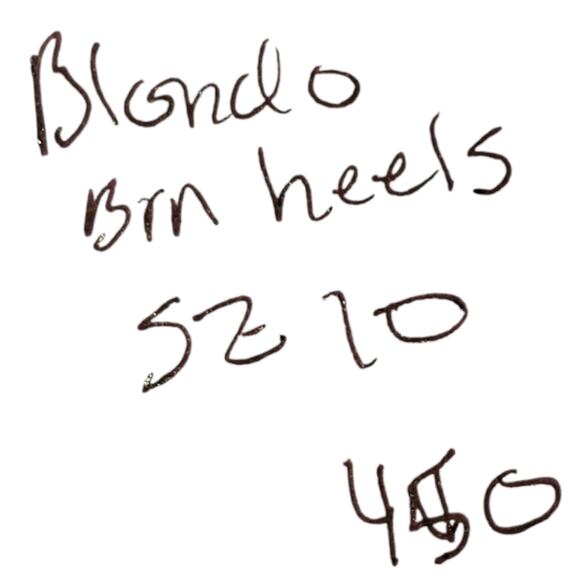 Blondo
Brn heels
SZ 10
450